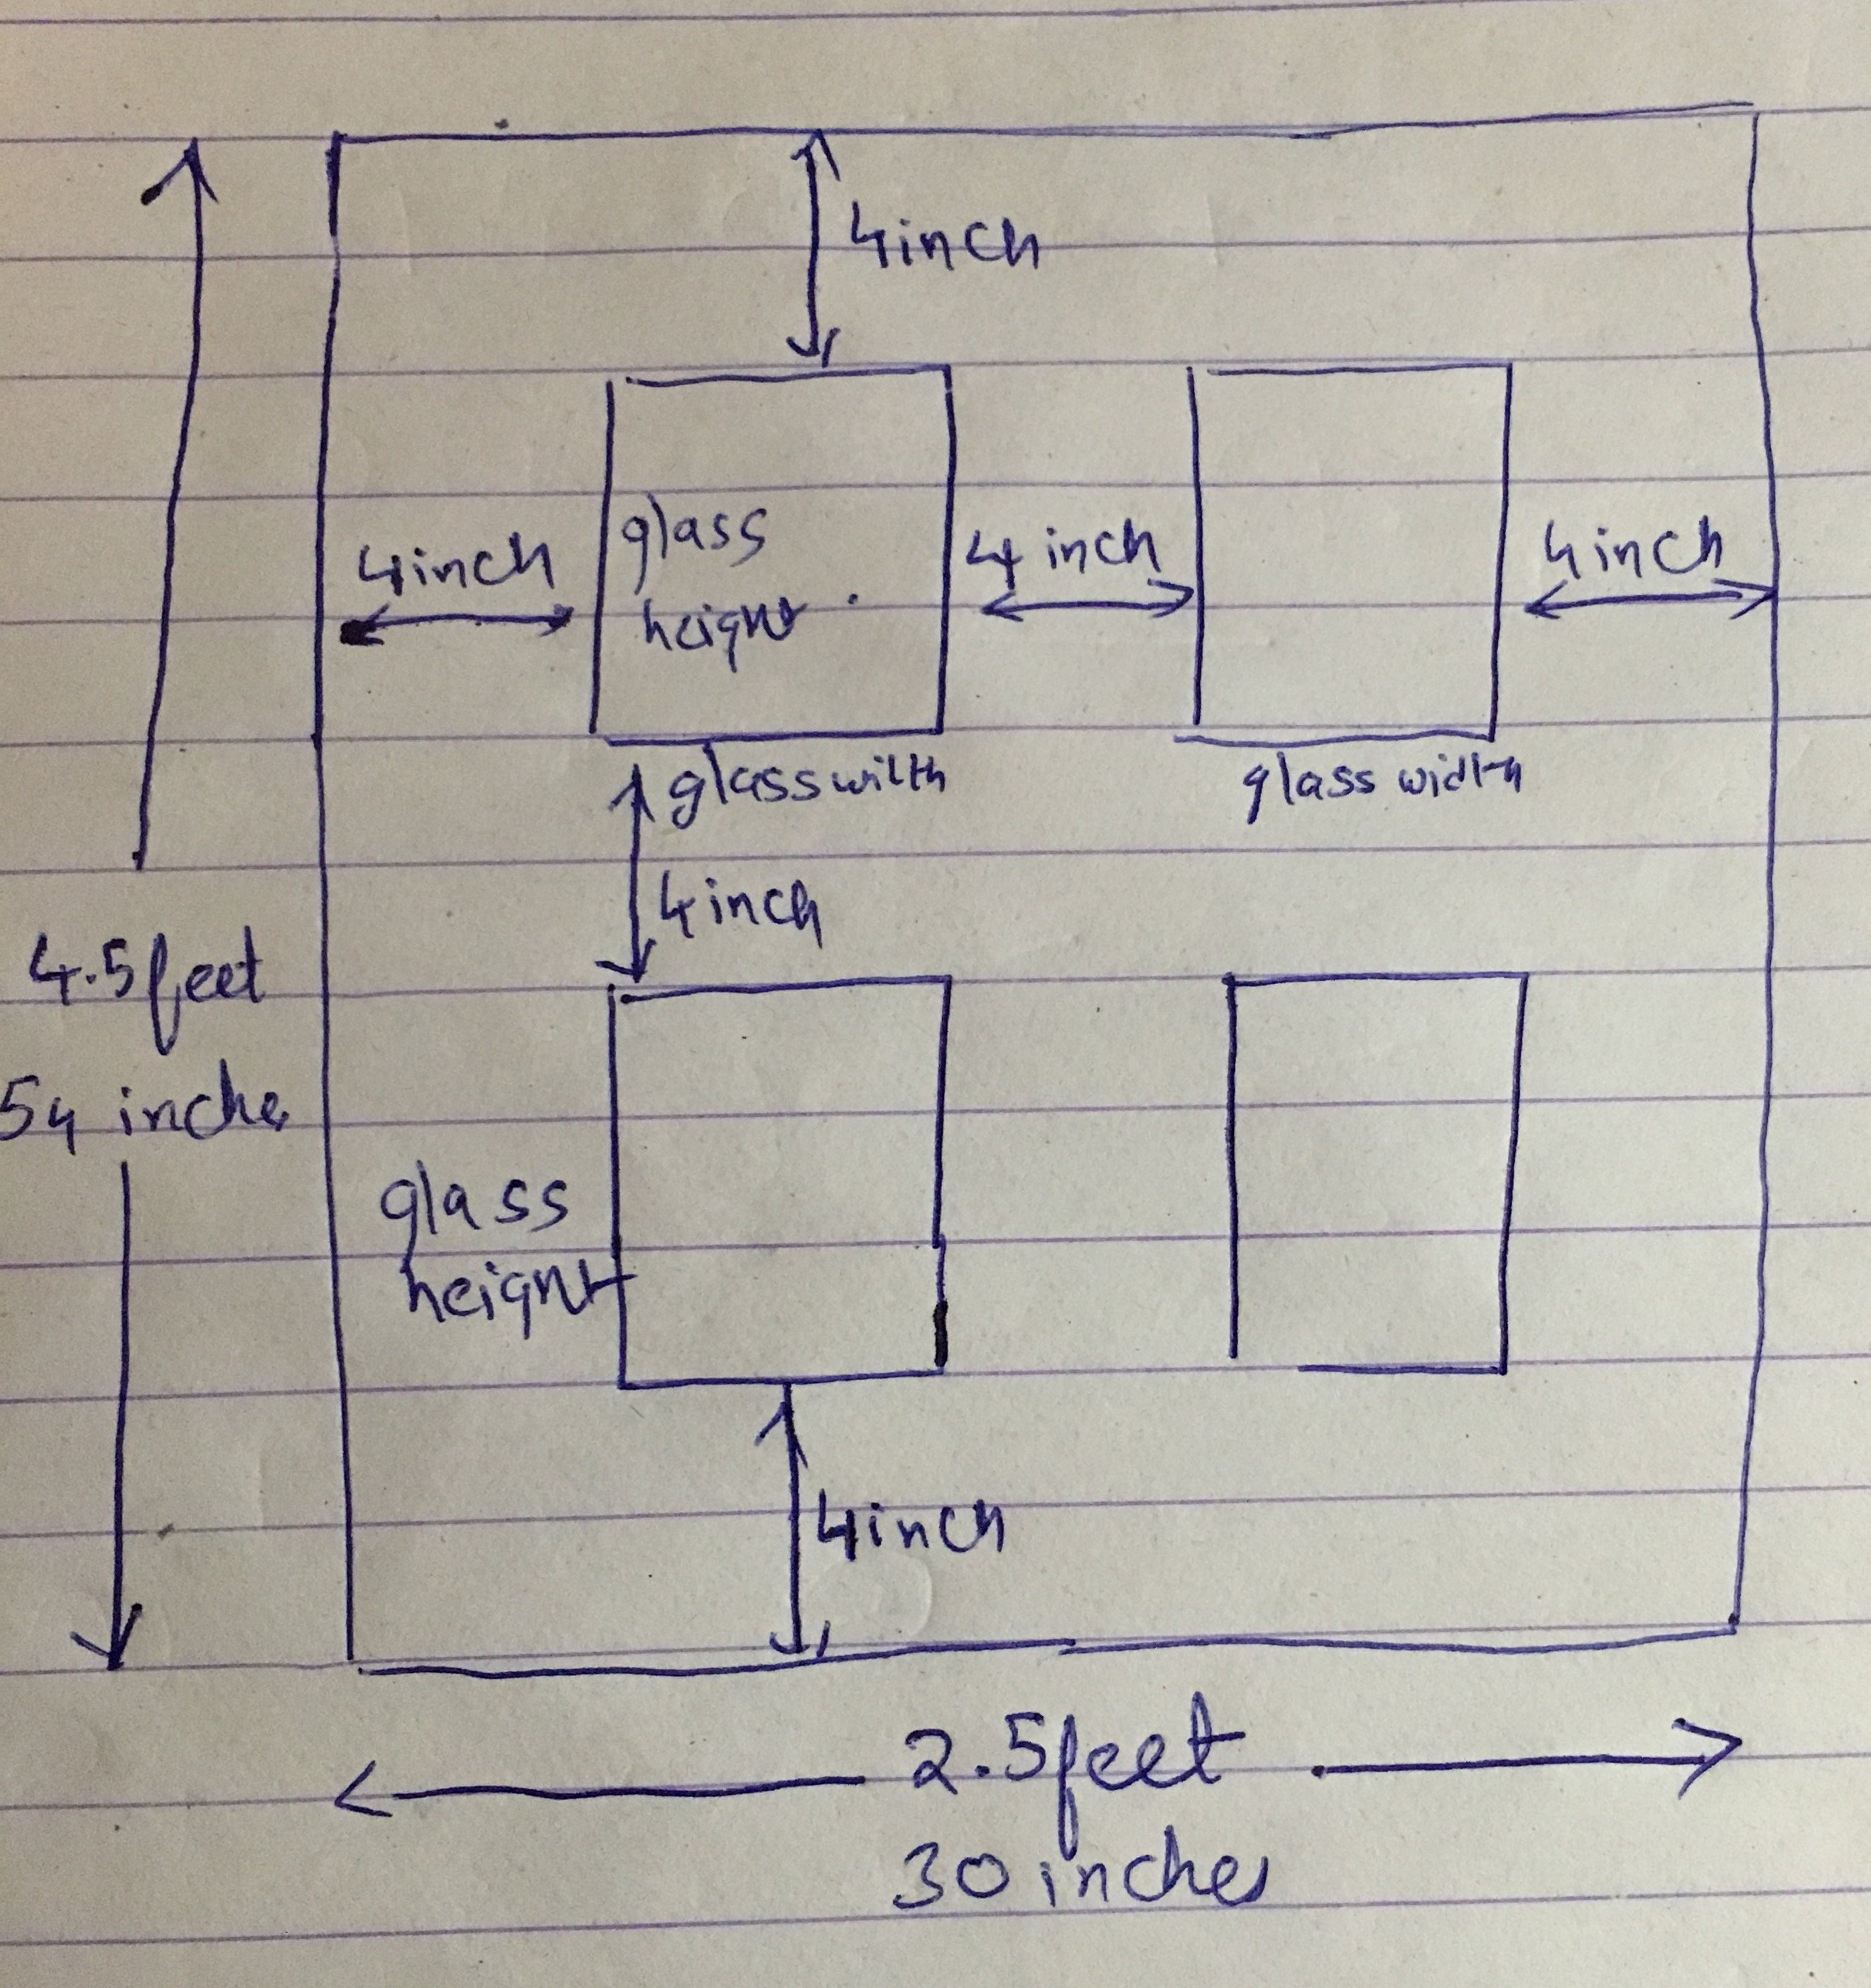 4inch
glass
height
4inch
4 inch
4inch
glass width
glass width
4inch
4.5feet
54 inches
glass
height
4inch
2.5feet
30 inches